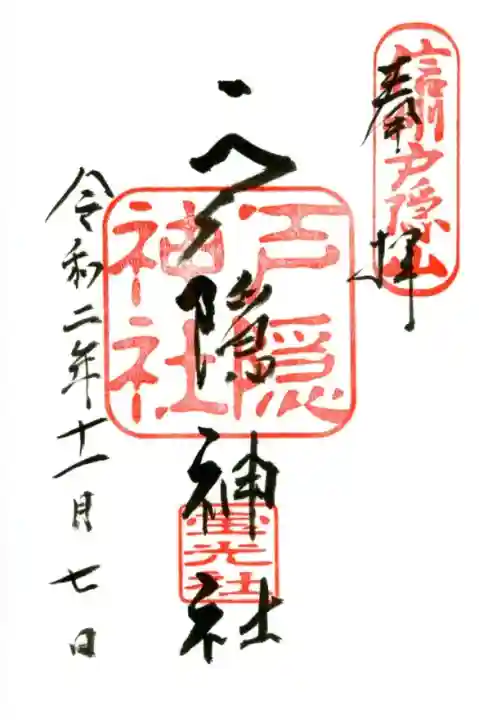 奉拝
信州戸隠山
戸隠神社
戸隠神社
宝光社
令和二年十一月七日